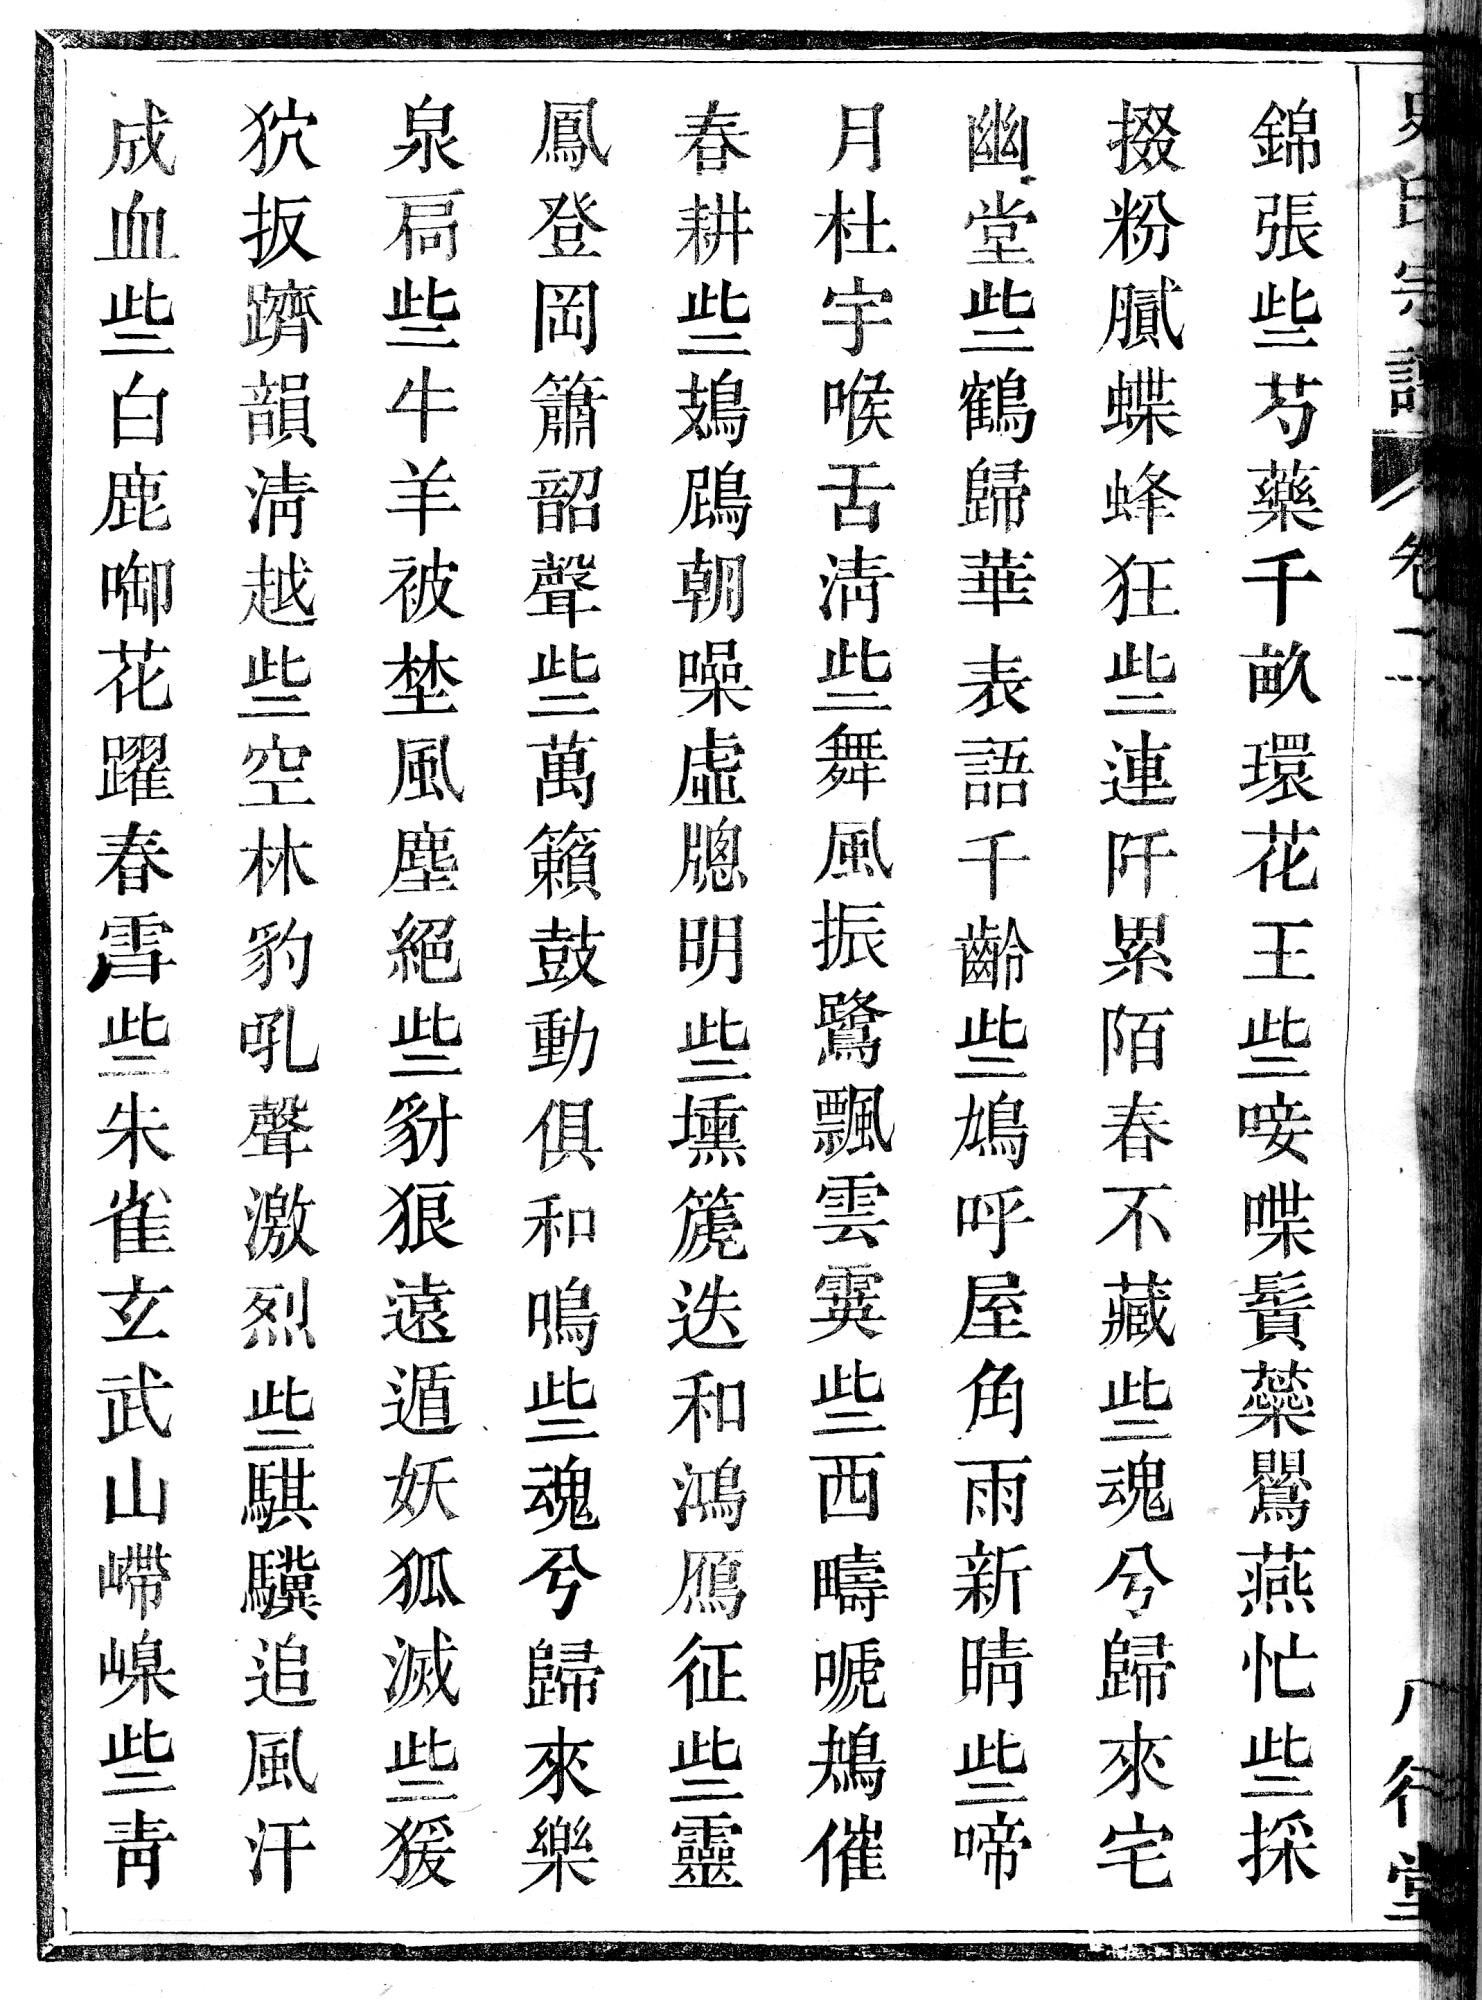 史氏宗譜 卷二 八行堂
錦張些芍藥千畝環花王些唼喋鬚蘂鸎燕忙些採
掇粉膩蝶蜂狂些連阡累陌春不藏些魂兮歸來宅
幽堂些鶴歸華表語千齡些鳩呼屋角雨新晴些啼
月杜宇喉舌淸些舞風振鷺飄雲霙些西疇嗁鴣催
春耕些鳷鴟朝噪虛牕明些壎篪迭和鴻鴈征些靈
鳳登岡簫韶聲些萬籟鼓動俱和鳴些魂兮歸來樂
泉扃些牛羊被埜風塵絕些豺狼遠遁妖狐滅些猨
狖扳躋韻淸越些空林豹吼聲激烈些騏驥追風汗
成血些白鹿啣花躍春雪些朱雀玄武山嵽嵲些靑